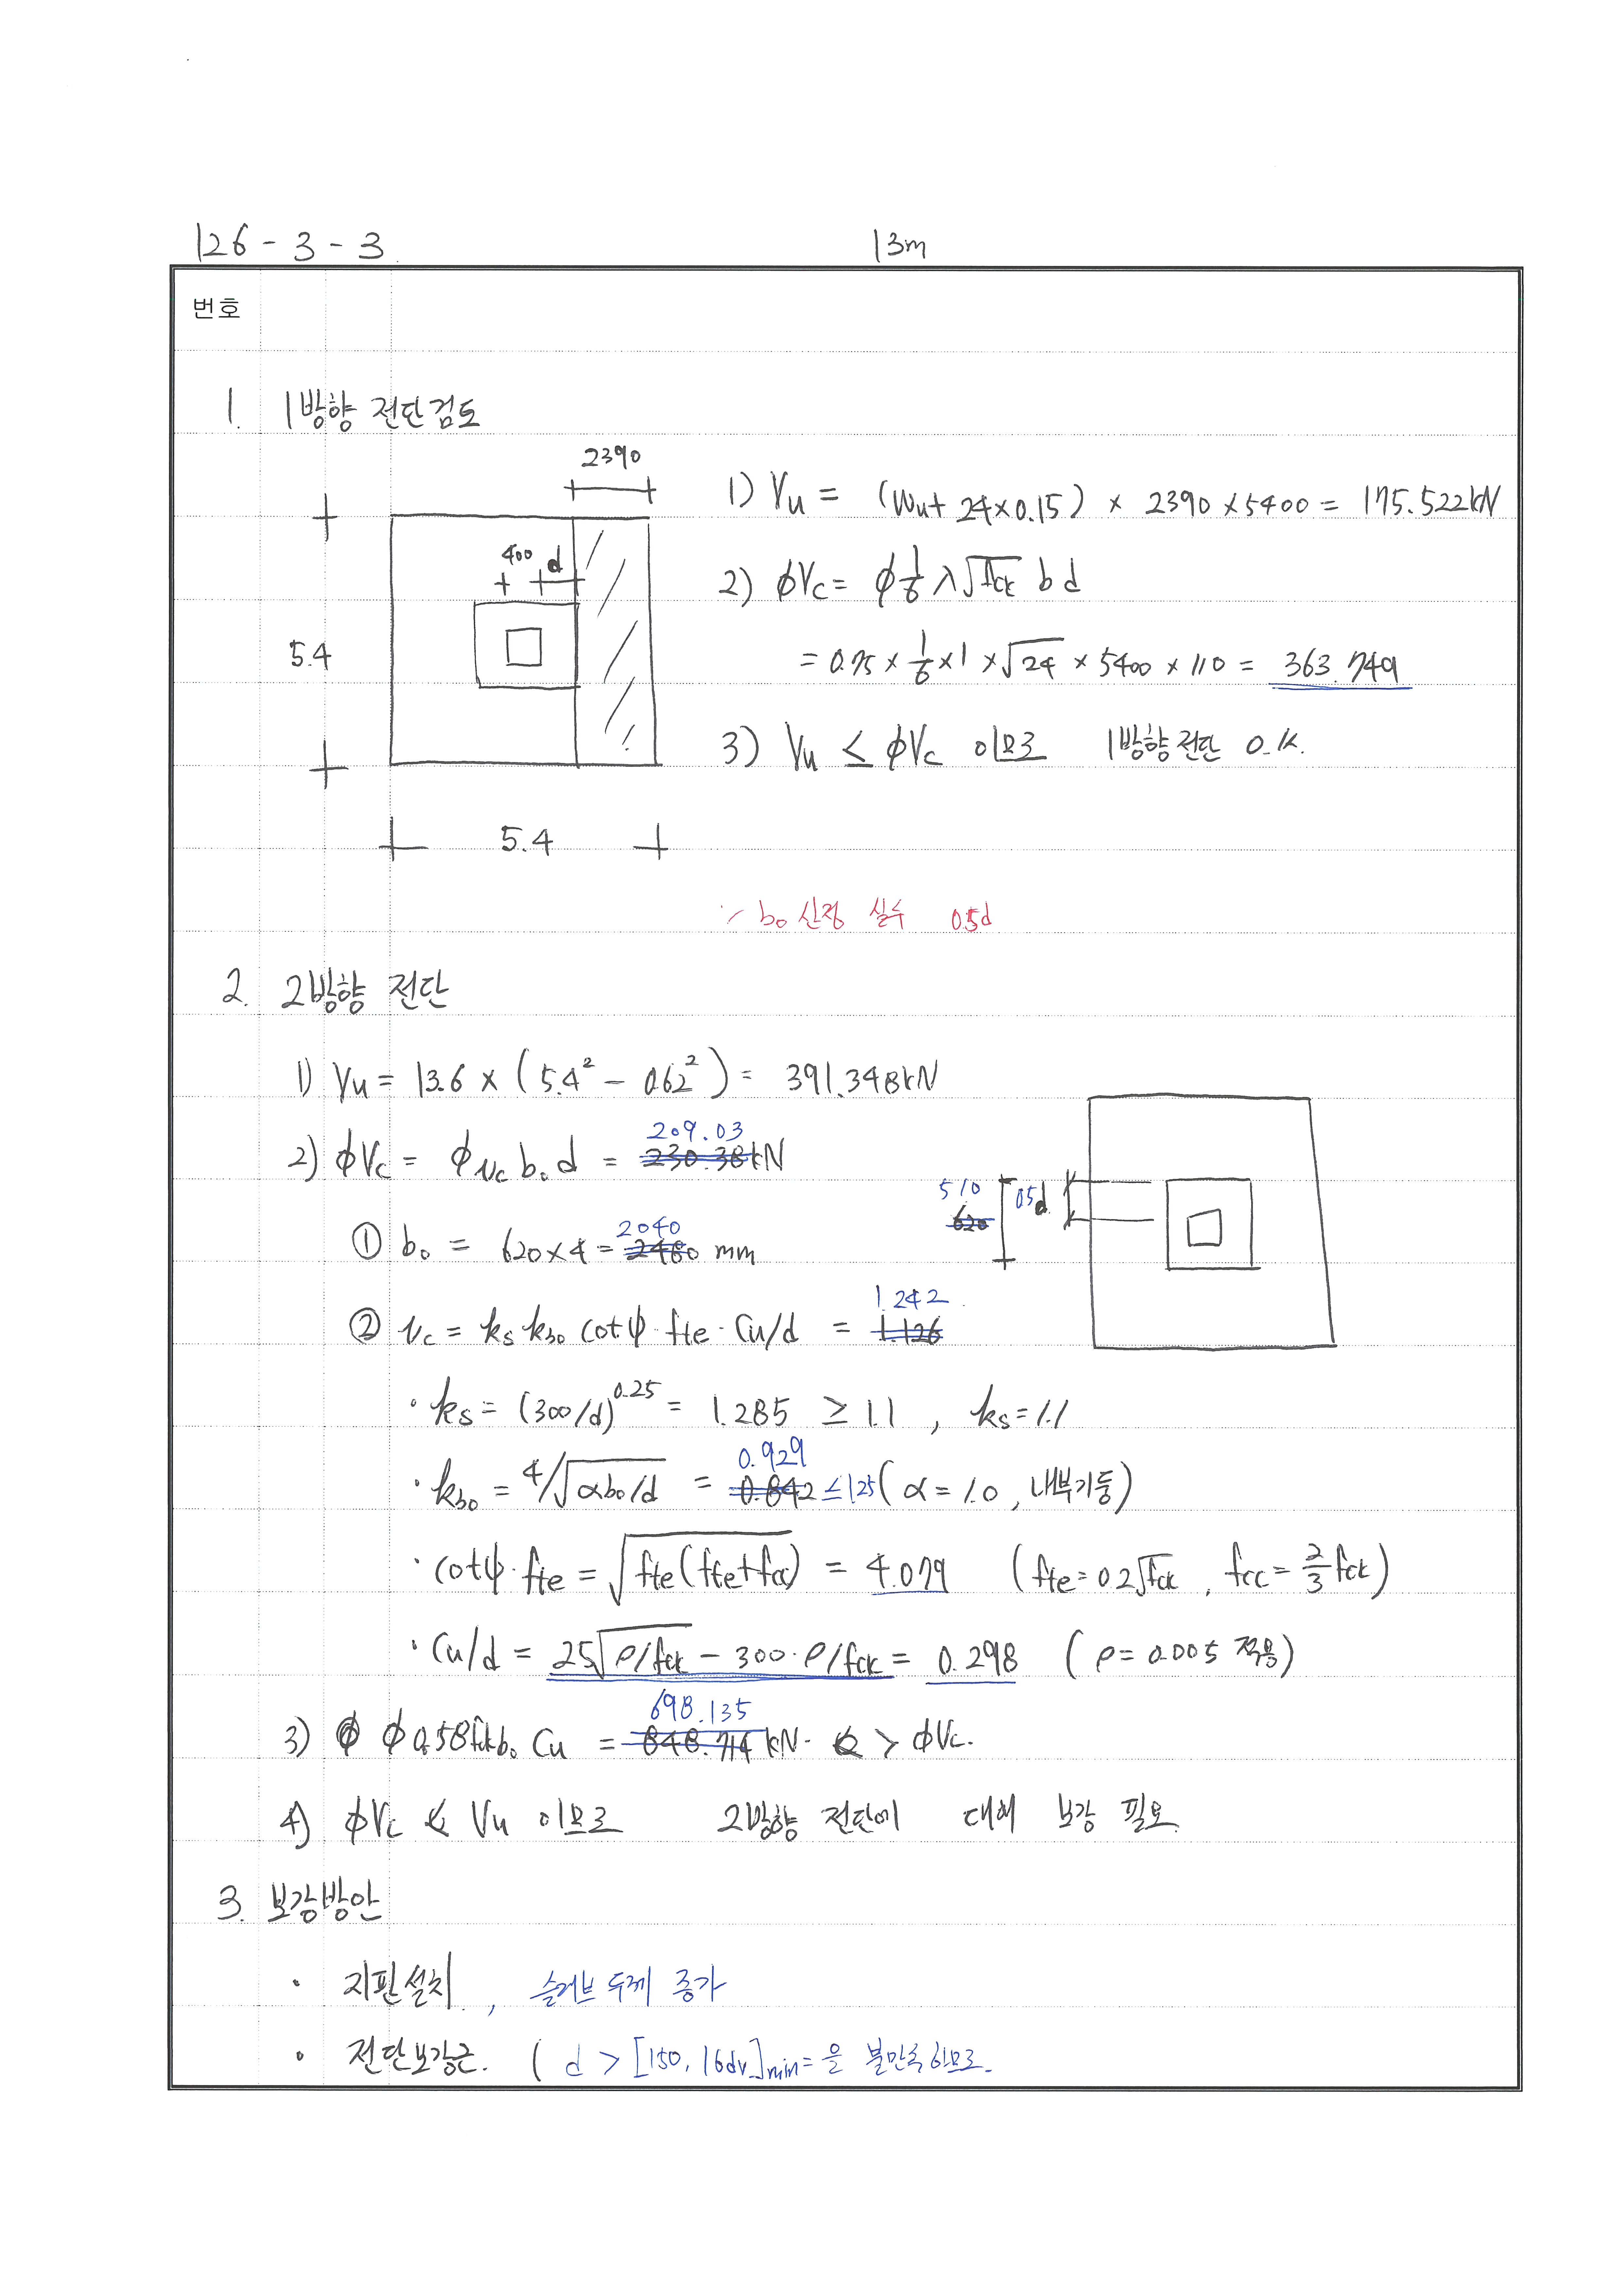 126 - 3 - 3
13m
번호
1. 1방향 전단검토
2390
1) Vu = (Wu + 24×0.15) × 2390 × 5400 = 175.522kN
400 d
2) φVc = φ 1/6 λ√fck b d
5.4
= 0.75 × 1/6 × 1 × √24 × 5400 × 110 = 363.749
3) Vu ≤ φVc 이므로 1방향 전단 O.K.
5.4
b₀ 산정 실수 0.5d
2. 2방향 전단
1) Vu = 13.6 × (5.4² - 0.62²) = 391.348kN
209.03
2) φVc = φ vc b₀ d = 230.38kN
510 0.5d
620
2040
① b₀ = 620×4 = 2480 mm
1.242
② vc = ks kb₀ cotψ · fte · Cu/d = 1.126
· ks = (300/d)^0.25 = 1.285 ≥ 1.1 , ks = 1.1
0.929
· kb₀ = 4/√αb₀/d = 0.842 ≤ 1.25 ( α = 1.0 , 내부기둥)
· cotψ · fte = √fte(fte+fcc) = 4.079 ( fte = 0.2√fck , fcc = 2/3 fck )
· Cu/d = 25√ρ/fck - 300·ρ/fck = 0.298 ( ρ = 0.005 적용)
698.135
3) φ 0.58fck b₀ Cu = 848.714 kN > φVc.
4) φVc < Vu 이므로 2방향 전단에 대해 보강 필요.
3. 보강방안
· 지판설치 , 슬래브 두께 증가
· 전단보강근. ( d > [150, 16dv]min = 을 불만족하므로.